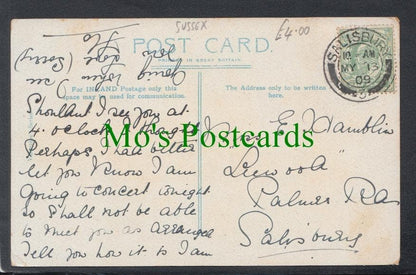 SUSSEX
£4.00
POST CARD.
PRINTED IN GREAT BRITAIN.
For INLAND Postage only this
space may be used for communication.
The Address only to be written
here.
SALISBURY
AM
MY 13
09
Shouldn't I see you at
4. o'clock
Perhaps I had better
let you know I am
going to concert tonight
so shall not be able
to meet you as arranged
Tell you how it is I am
E Hamblin
Palmer Rd
Salisbury
Mo's Postcards